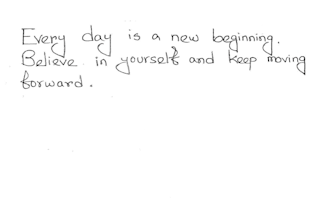 Every day is a new beginning.
Believe in yourself and keep moving
forward.